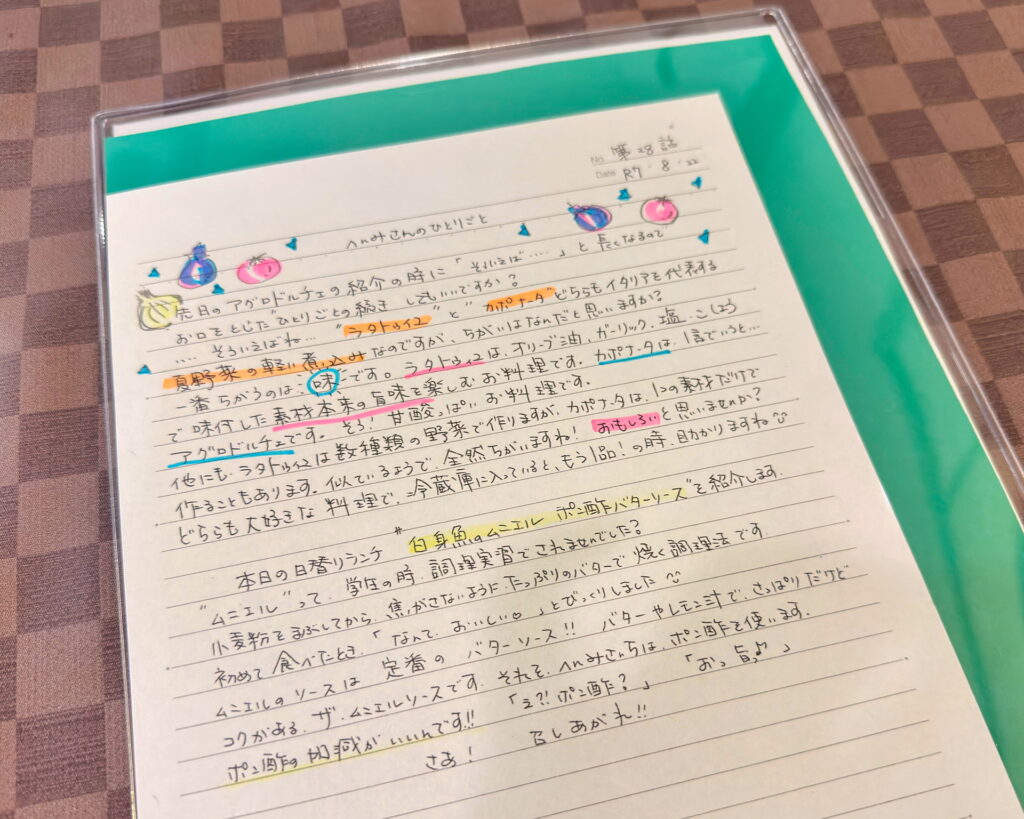 No. 第28話
Date R7・8・22
へnみさんのひとりごと
先日の アグロドルチェの紹介の時に「そういえば……」と 長くなるので
お口をとじた"ひとりごとの続き してもいいですか？
…… そういえばね… "ラタトゥイユ" と "カポナータ" どちらもイタリアを代表する
夏野菜の軽い煮込みなのですが、ちがいはなんだと思いますか？
一番ちがうのは、味です。ラタトゥイユは、オリーブ油、ガーリック、塩、こしょう
で 味付した 素材本来の旨味を楽しむお料理です。カポナータは、1言でいうと…
アグロドルチェです。そう！ 甘酸っぱい お料理です。
他にも、ラタトゥイユは数種類の野菜で作りますが、カポナータは、1つの素材だけで
作ることもあります。似ているようで、全然ちがいますね！ おもしろいと思いませんか？
どちらも大好きな 料理で、冷蔵庫に入っていると、もう1品！の時、助かりますね
本日の日替りランチ "白身魚のムニエル ポン酢バターソース"を紹介します。
"ムニエル"って、学生の時、調理実習でされませんでした？
小麦粉をまぶしてから、焦がさないように たっぷりのバターで 焼く調理法です
初めて 食べたとき、「なんて、おいしい♡」とびっくりしました
ムニエルの ソースは 定番の バターソース!! バターやレモン汁で、さっぱりだけど
コクがある、ザ・ムニエルソースです。それを、へnみさんちは、ポン酢を使います。
ポン酢の加減がいいんです!! 「え?! ポン酢？」 「おっ旨♪」
さあ！ 召しあがれ!!